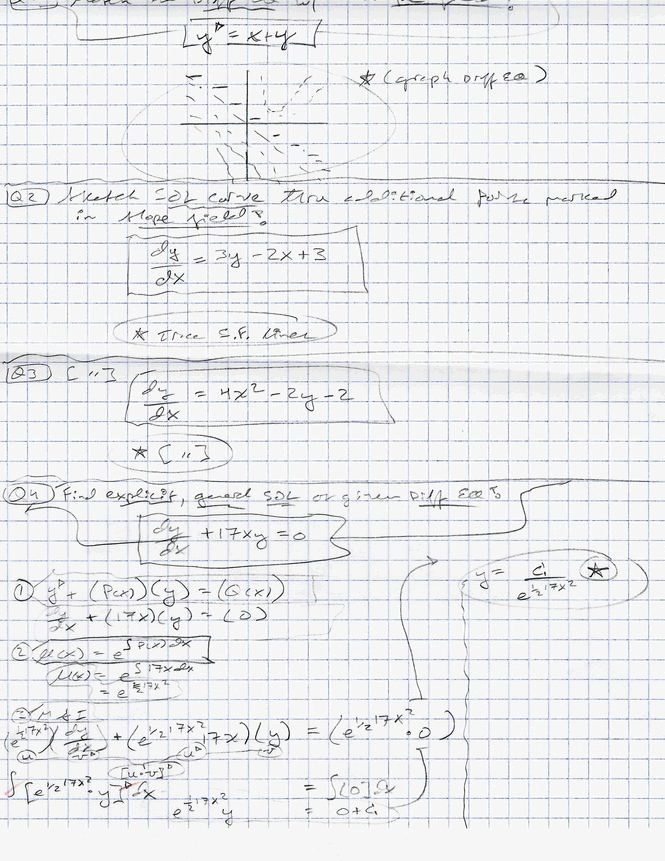 y' = x+y
* (graph Diff EQ)
Q2 Sketch SOL curve thru additional points marked
in slope field?
dy/dx = 3y - 2x + 3
* Trace S.F. lines
Q3 [ " ] dy/dx = 4x² - 2y - 2
* [ " ]
Q4 Find explicit, general SOL of given Diff EQ?
dy/dx + 17xy = 0
y = C₁ / e^(1/2 17x²) *
① y' + (P(x))(y) = (Q(x))
dy/dx + (17x)(y) = (0)
② μ(x) = e^∫P(x)dx
μ(x) = e^∫17xdx
= e^(1/2 17x²)
(e^(1/2 17x²))(dy/dx) + (e^(1/2 17x²) 17x)(y) = (e^(1/2 17x²) · 0)
u v' u' v
[u·v]'
∫[e^(1/2 17x²) · y]' dx = ∫[0]dx
e^(1/2 17x²) y = 0 + C₁